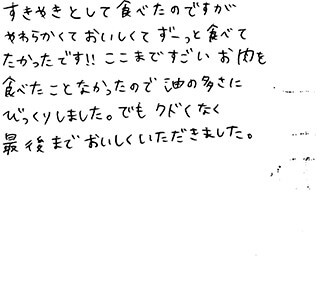 すきやきとして食べたのですが
やわらかくておいしくてずーっと食べて
たかったです!!ここまですごいお肉を
食べたことなかったので油の多さに
びっくりしました。でもクドくなく
最後までおいしくいただきました。